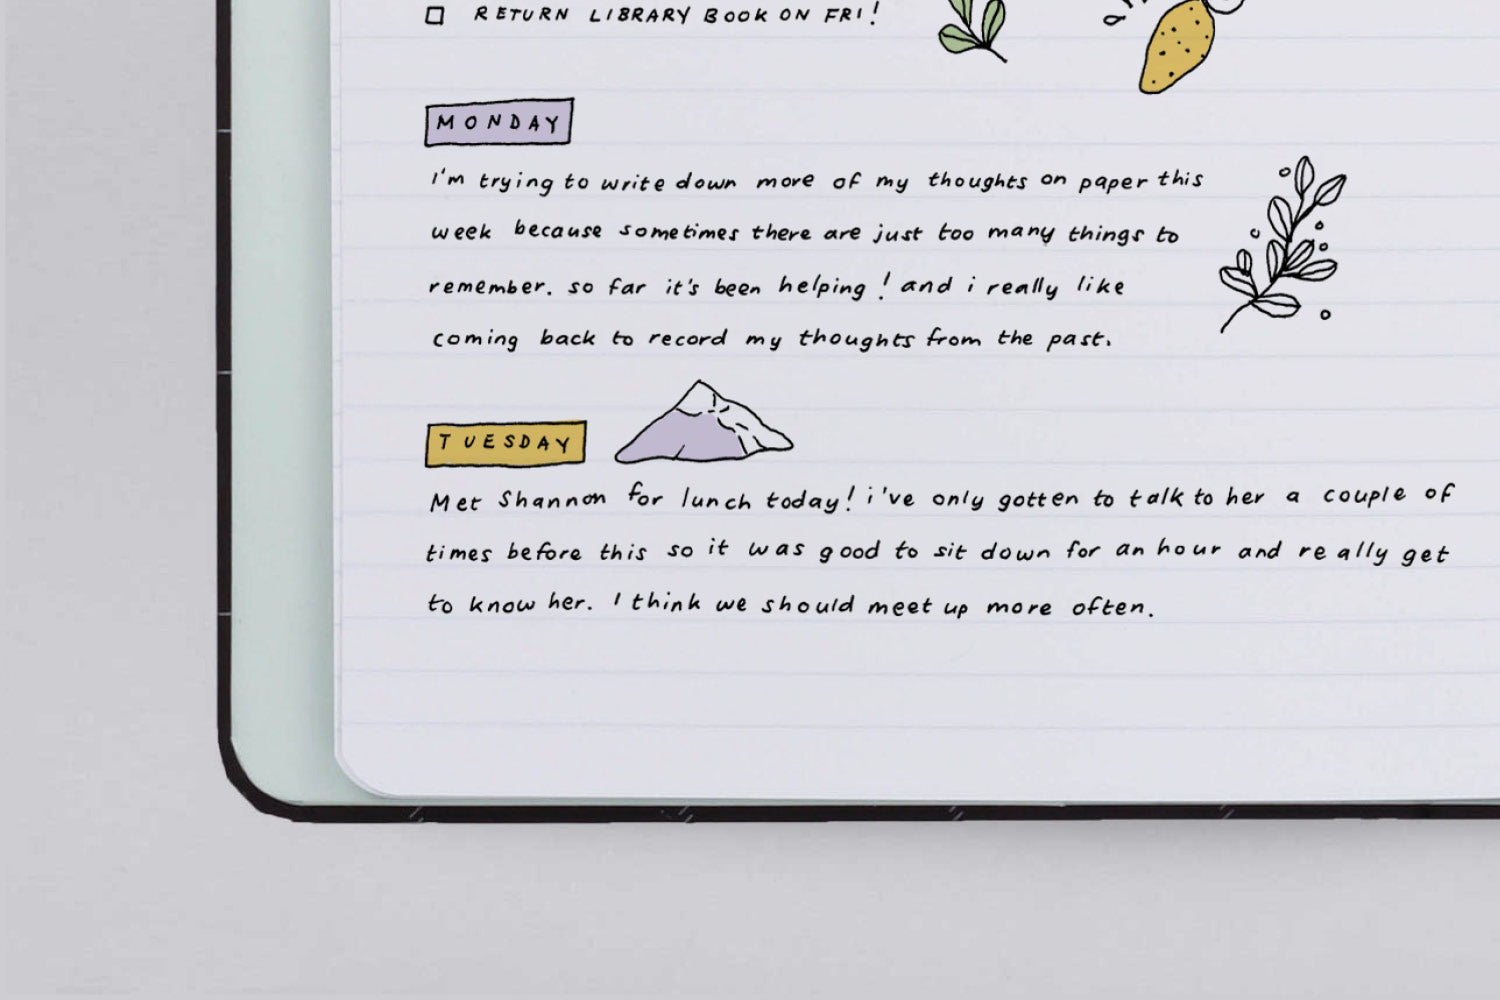 RETURN LIBRARY BOOK ON FRI!
MONDAY
I'm trying to write down more of my thoughts on paper this
week because sometimes there are just too many things to
remember. so far it's been helping! and i really like
coming back to record my thoughts from the past.
TUESDAY
Met Shannon for lunch today! i've only gotten to talk to her a couple of
times before this so it was good to sit down for an hour and really get
to know her. I think we should meet up more often.